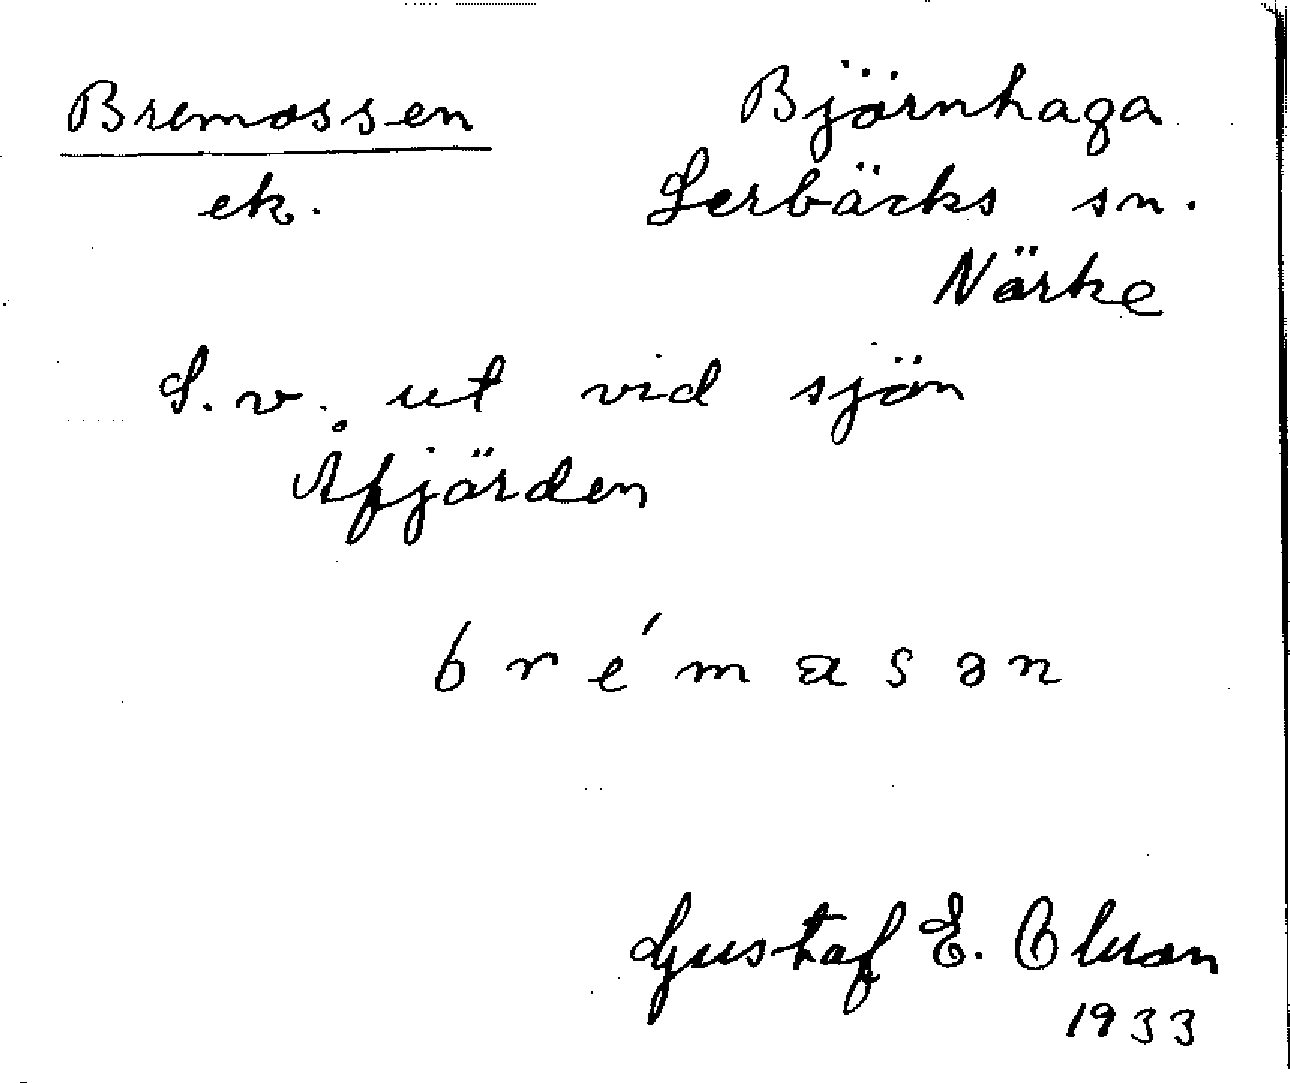 Bremossen
ek.
Björnhaga
Lerbäcks sn.
Närke
S.v. ut vid sjön
Åfjärden
b r é m a s ə n
Gustaf E. Olsson
1933